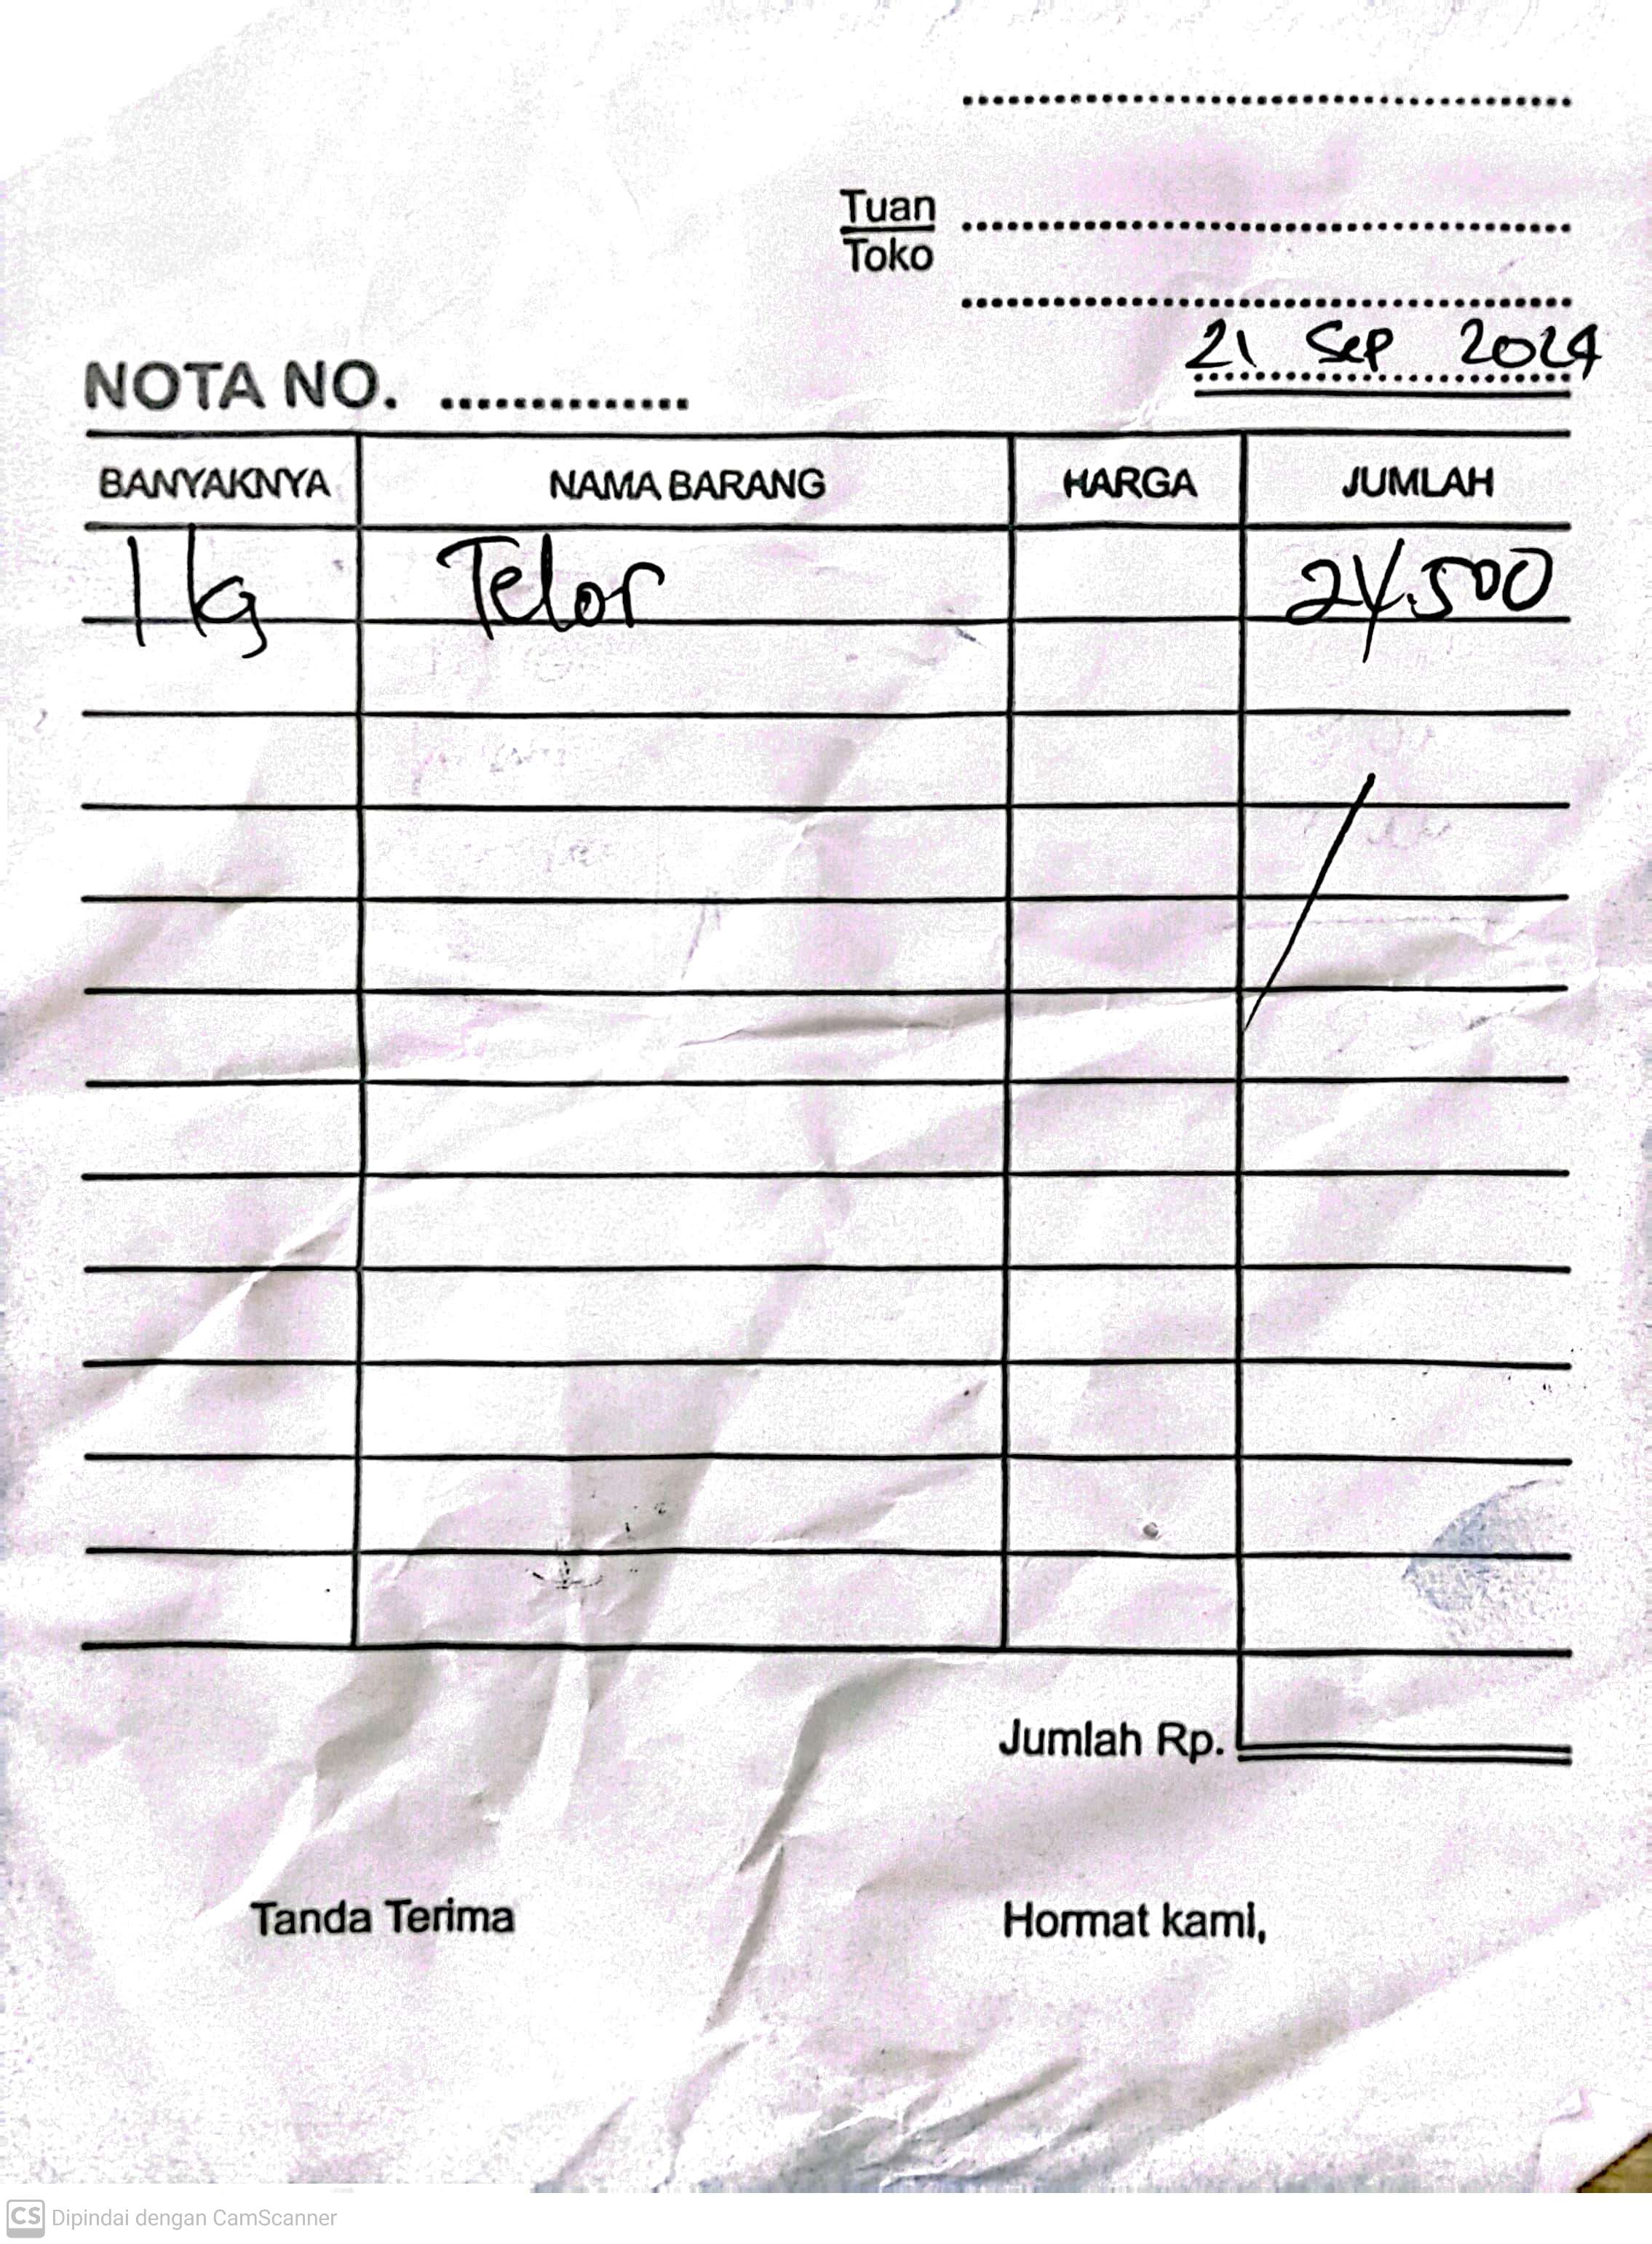 Tuan
Toko
21 Sep 2024
NOTA NO.
BANYAKNYA NAMA BARANG HARGA JUMLAH
1 kg Telor 24.500
Jumlah Rp.
Tanda Terima Hormat kami,
CS Dipindai dengan CamScanner